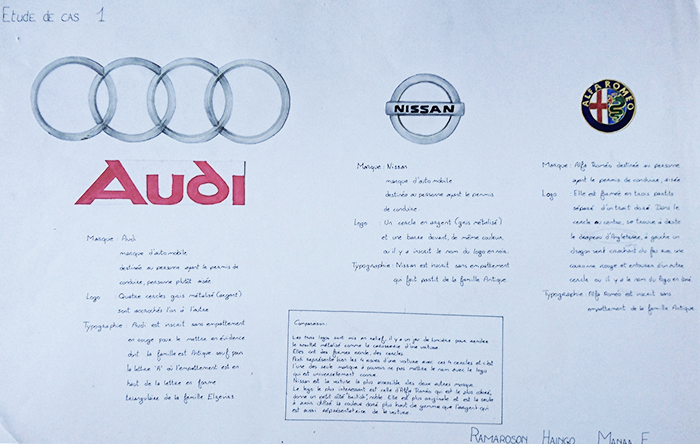 ETUDE DE CAS 1
Audi
NISSAN
ALFA ROMEO
Marque : Audi
marque d'automobile
destinée au personne ayant le permis de
conduire, personne plutôt aisée
Logo : Quatre cercles gris métalisé (argent)
sont accrochés l'un à l'autre
Typographie : Audi est inscrit sans empattement
en rouge pour le mettre en évidence
dont la famille est Antique sauf pour
la lettre "A" où l'empattement est en
haut de la lettre en forme
triangulaire de la famille Elzévirs
Marque : Nissan
marque d'automobile
destinée au personne ayant le permis
de conduire
Logo : Un cercle en argent (gris métalisé)
et une barre devant, de même couleur,
où il y a inscrit le nom du logo en noir.
Typographie : Nissan est inscrit sans empattement
qui fait partit de la famille Antique.
Marque : Alfa Roméo destinée au personne
ayant le permis de conduire, aisée
Logo : Elle est formée en trois partits
séparé d'un trait doré. Dans le
cercle au centre, se trouve à droite
le drapeau d'Angleterre, à gauche un
dragon vert crachant du feu avec une
couronne rouge et entourer d'un autre
cercle où il y a le nom du logo en doré
Typographie : Alfa Roméo est inscrit sans
empattement de la famille Antique
Comparaison :
Les trois logos sont mis en relief, il y a un jeu de lumière pour rendre
la réalité métalisé comme la carosserie d'une voiture.
Elles ont des formes ronde, des cercles.
Audi représente bien les 4 roues d'une voiture avec ces 4 cercles et c'est
l'une des seule marque à pouvoir ne pas mettre le nom avec le logo
qui est universellement connu.
Nissan est la voiture la plus accessible des deux autres marque.
Le logo le plus intéressant est celle d'Alfa Roméo qui est le plus coloré,
donne un petit côté british, noble. Elle est plus originale et est la seule
à avoir utilisé la couleur doré plus haut de gamme que l'argent qui
est aussi représentatrice de la voiture.
RAMAROSON HAINGO MANAA F